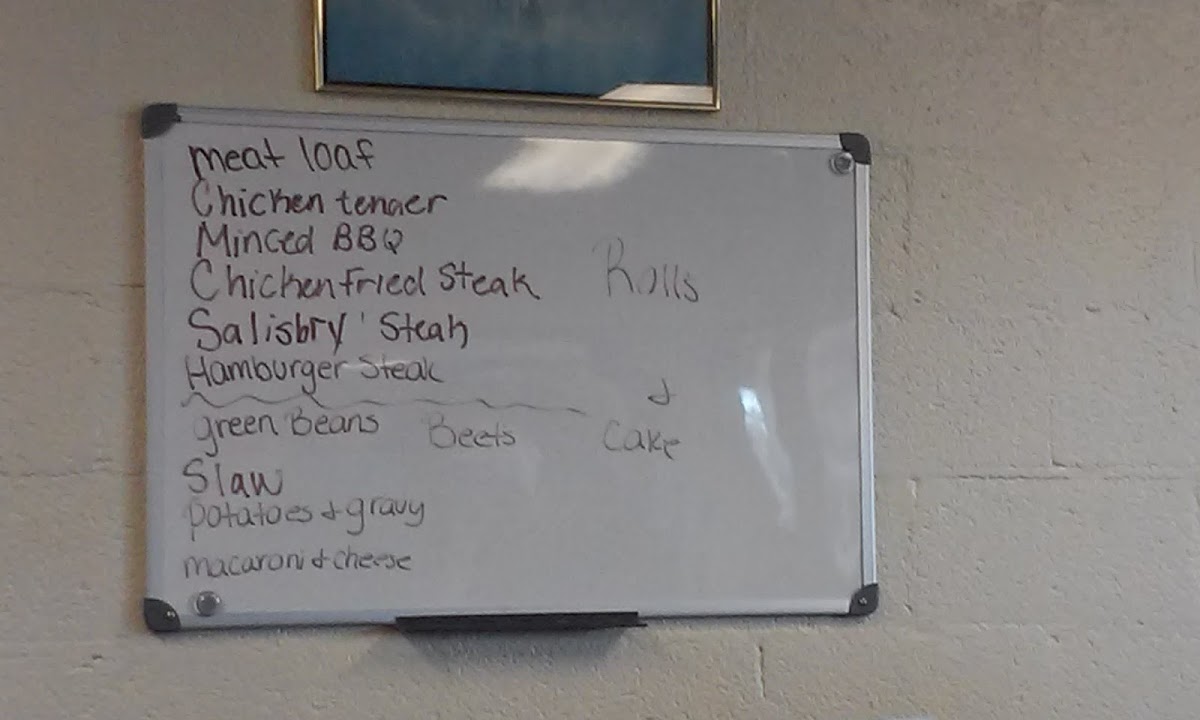 meat loaf
Chicken tender
Minced BBQ
Chicken Fried Steak
Rolls
Salisbry Steak
Hamburger Steak
&
green Beans Beets Cake
Slaw
potatoes & gravy
macaroni & cheese